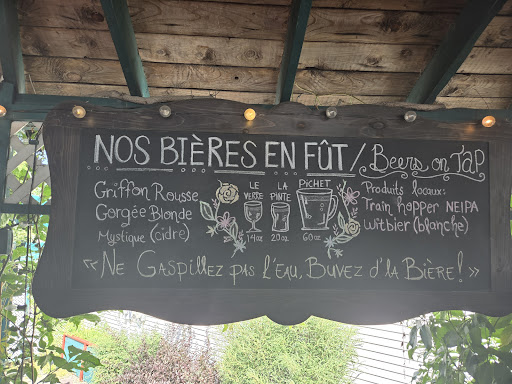 NOS BIÈRES EN FÛT / Beers on TAP
Griffon Rousse
Gorgée Blonde
Mystique (cidre)
LE VERRE
14oz
LA PINTE
20oz
PICHET
60oz
Produits locaux:
Train hopper NEIPA
Witbier (blanche)
«NE GASPILLEZ PAS L'EAU, BUVEZ d'LA BIÈRE!»